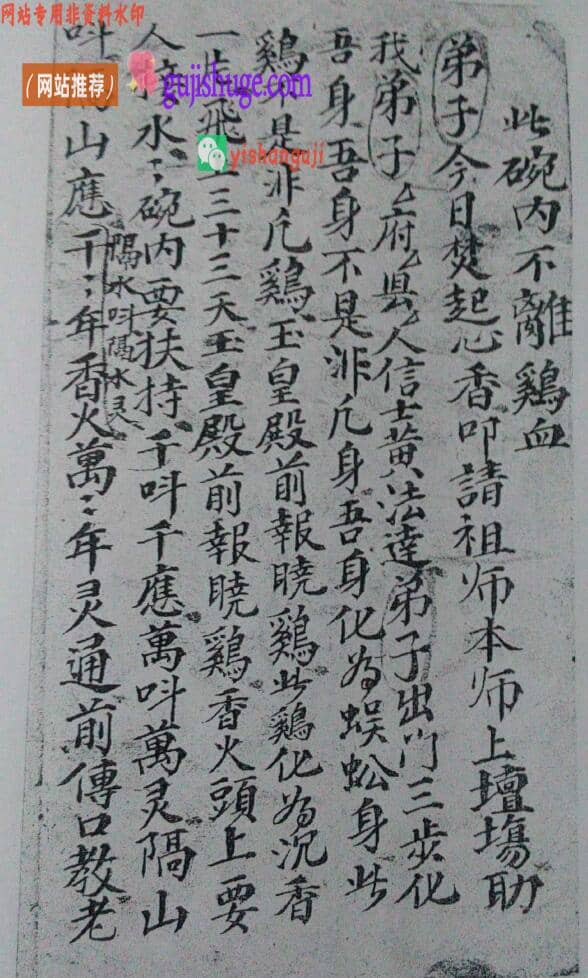 网站专用非资料水印
(网站推荐)
gujishuge.com
yishanguji
此碗内不離鷄血
弟子今日焚起心香叩請祖师本师上壇塲助
我弟子厶府厶县厶人信士黄法達弟子出门三步化
吾身吾身不是泍凡身吾身化为蜈蚣身此
鷄不是泍凡鷄玉皇殿前報曉鷄此鷄化为沉香
一片飛上三十三天玉皇殿前報曉鷄香火頭上要
人水〻碗内要扶持千呌千應萬呌萬灵隔山
呌隔山應千〻年香火萬〻年灵通前傳口教老
隔水呌隔水灵